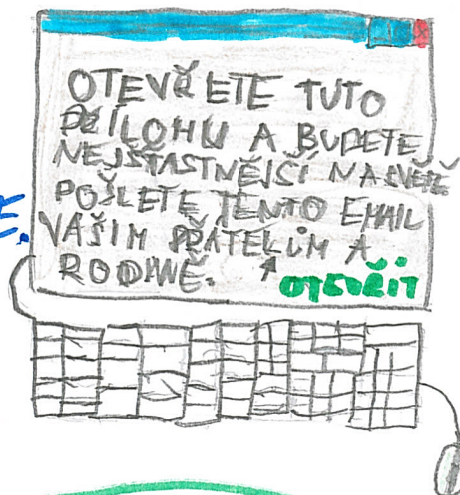 OTEVŘETE TUTO
PŘÍLOHU A BUDETE
NEJŠTASTNĚJŠÍ NA SVĚTĚ
POŠLETE TENTO EMAIL
VAŠIM PŘÁTELŮM A
RODINĚ.
OTEVŘÍT